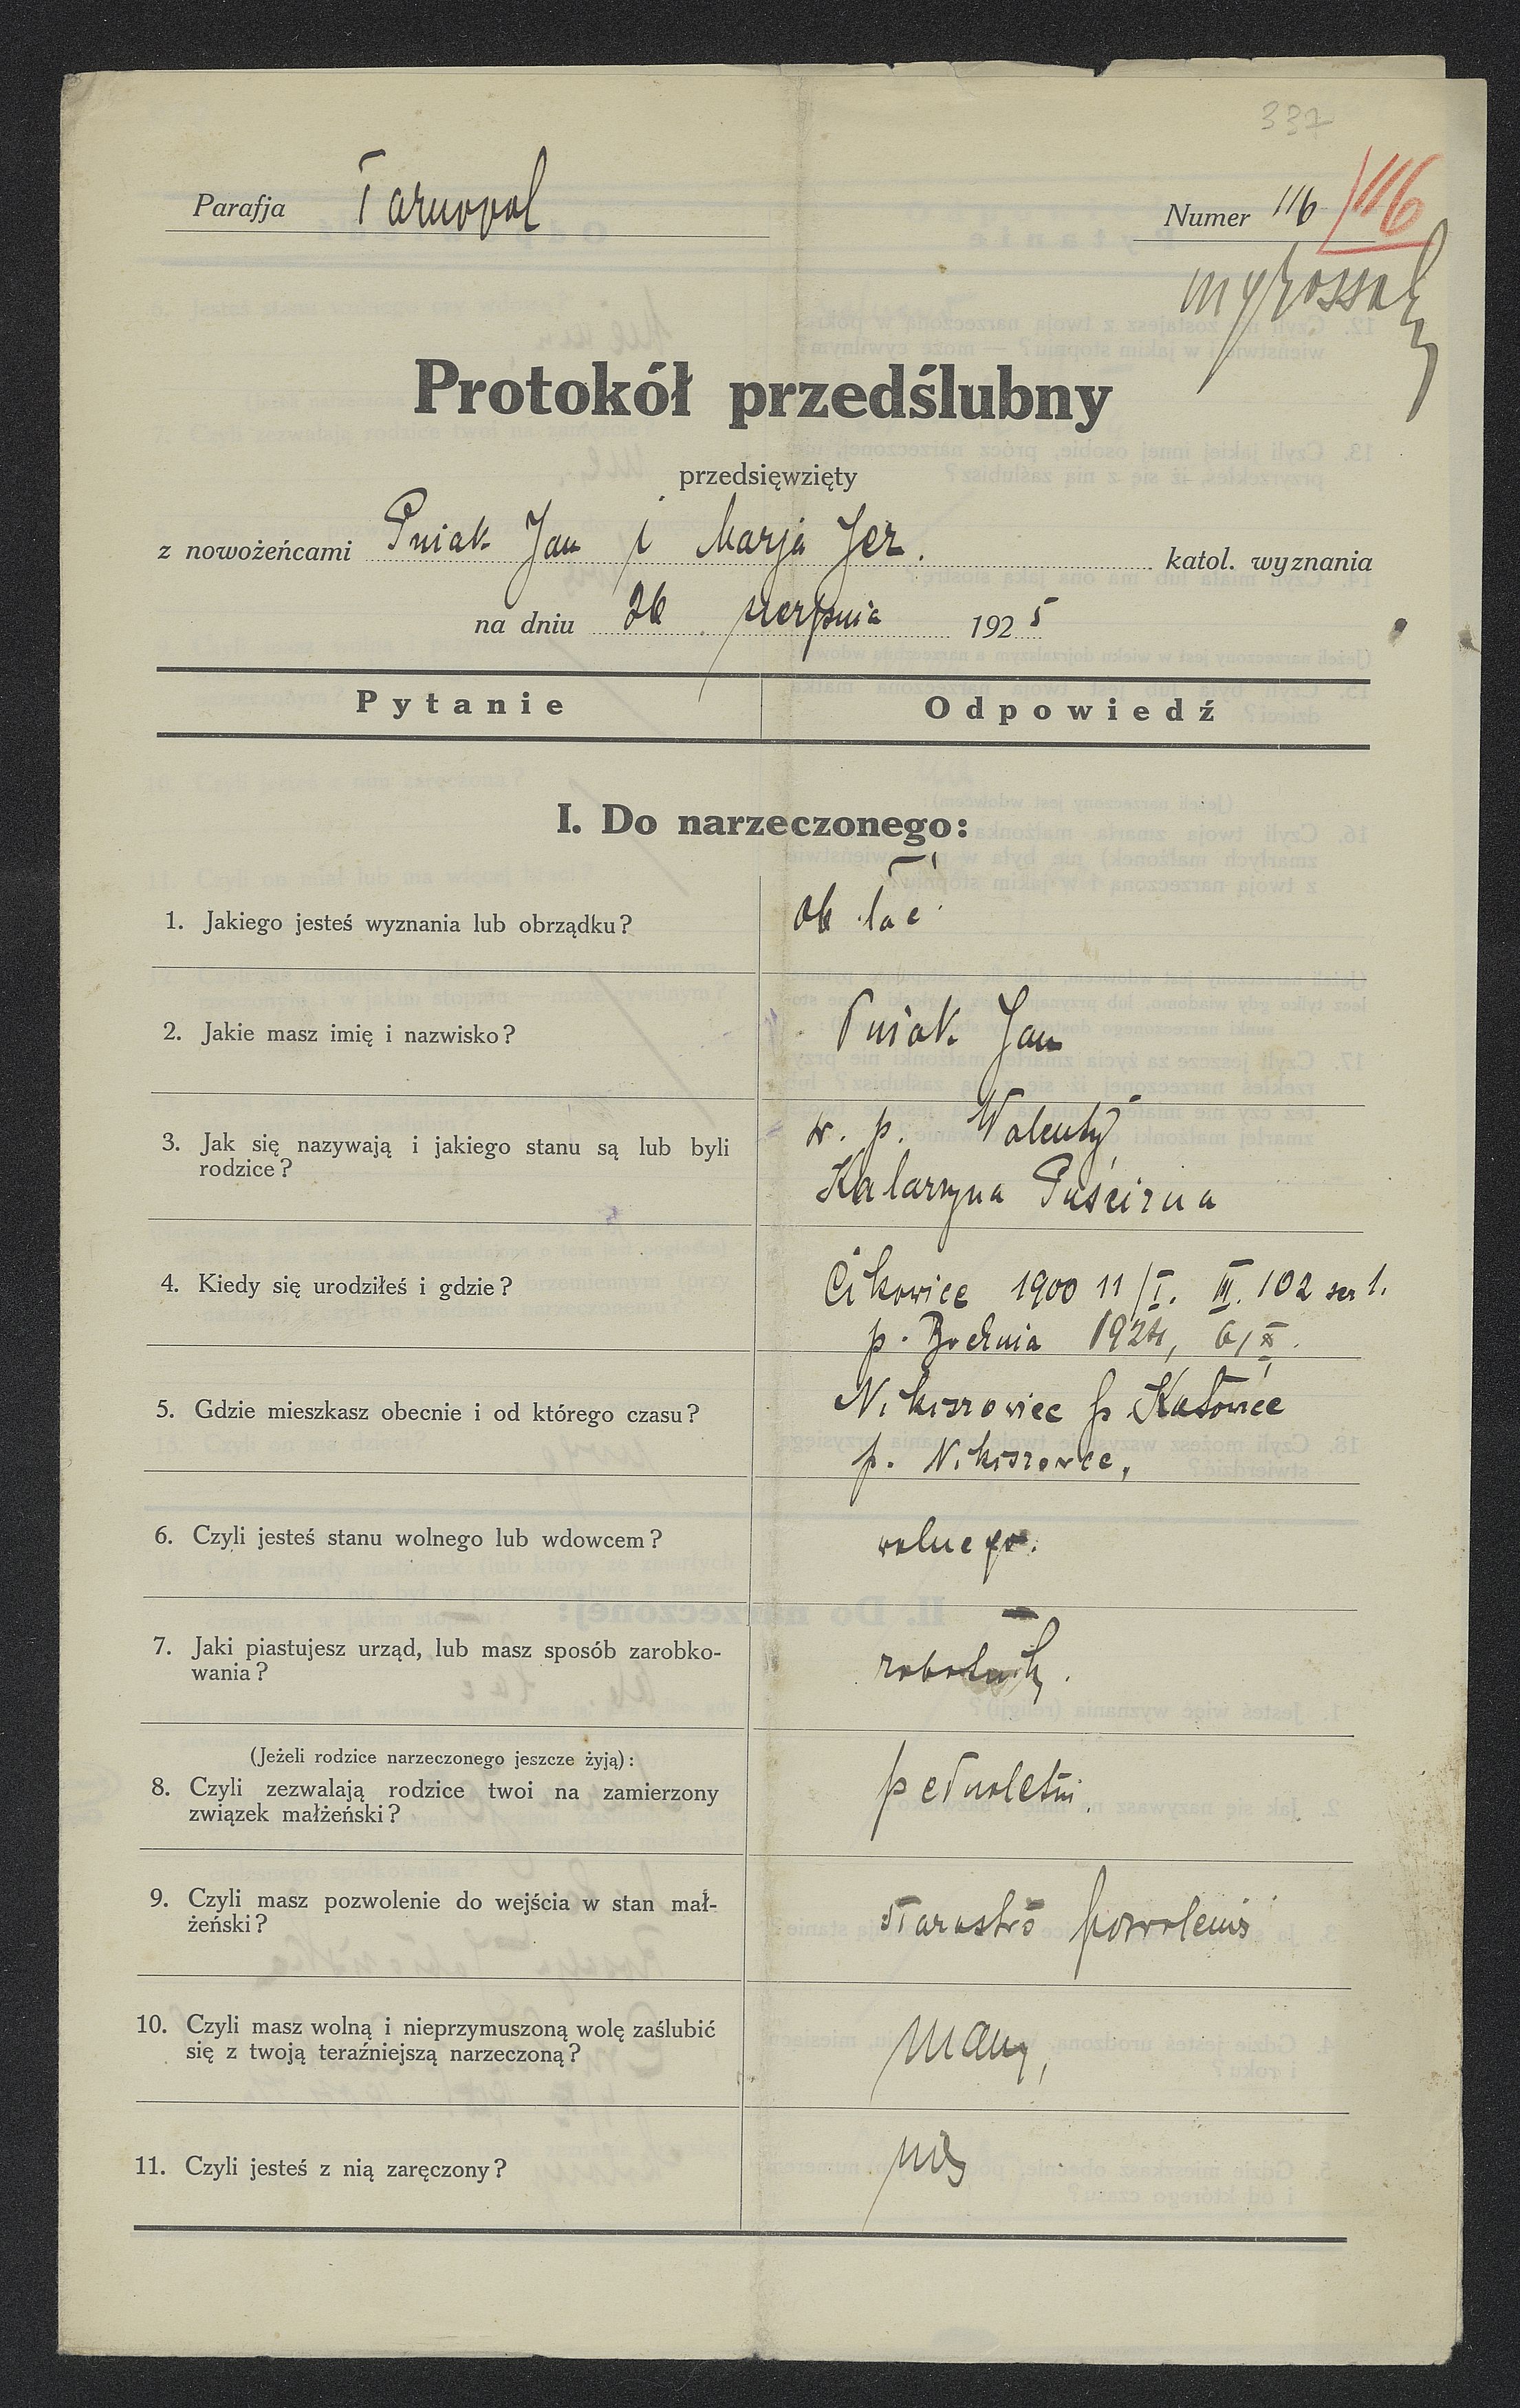 337
Parafja Tarnopol
Numer 116 116
Protokół przedślubny
przedsięwzięty
z nowożeńcami Pniak Jan i Marja Jez. katol. wyznania
na dniu 26 sierpnia 1925
Pytanie Odpowiedź
I. Do narzeczonego:
1. Jakiego jesteś wyznania lub obrządku?
ob łać
2. Jakie masz imię i nazwisko?
Pniak Jan
3. Jak się nazywają i jakiego stanu są lub byli
rodzice?
Walenty
Katarzyna Puścizna
4. Kiedy się urodziłeś i gdzie?
Cikowice 1900 11/I. III. 102 ser 1.
p. Bochnia 1924, 6/X.
5. Gdzie mieszkasz obecnie i od którego czasu?
Nikiszowiec p Katowice
p. Nikiszowce,
6. Czyli jesteś stanu wolnego lub wdowcem?
wolnego.
7. Jaki piastujesz urząd, lub masz sposób zarobko-
wania?
robotnik.
(Jeżeli rodzice narzeczonego jeszcze żyją):
8. Czyli zezwalają rodzice twoi na zamierzony
związek małżeński?
pełnoletni.
9. Czyli masz pozwolenie do wejścia w stan mał-
żeński?
pozwolenie
10. Czyli masz wolną i nieprzymuszoną wolę zaślubić
się z twoją teraźniejszą narzeczoną?
mam,
11. Czyli jesteś z nią zaręczony?